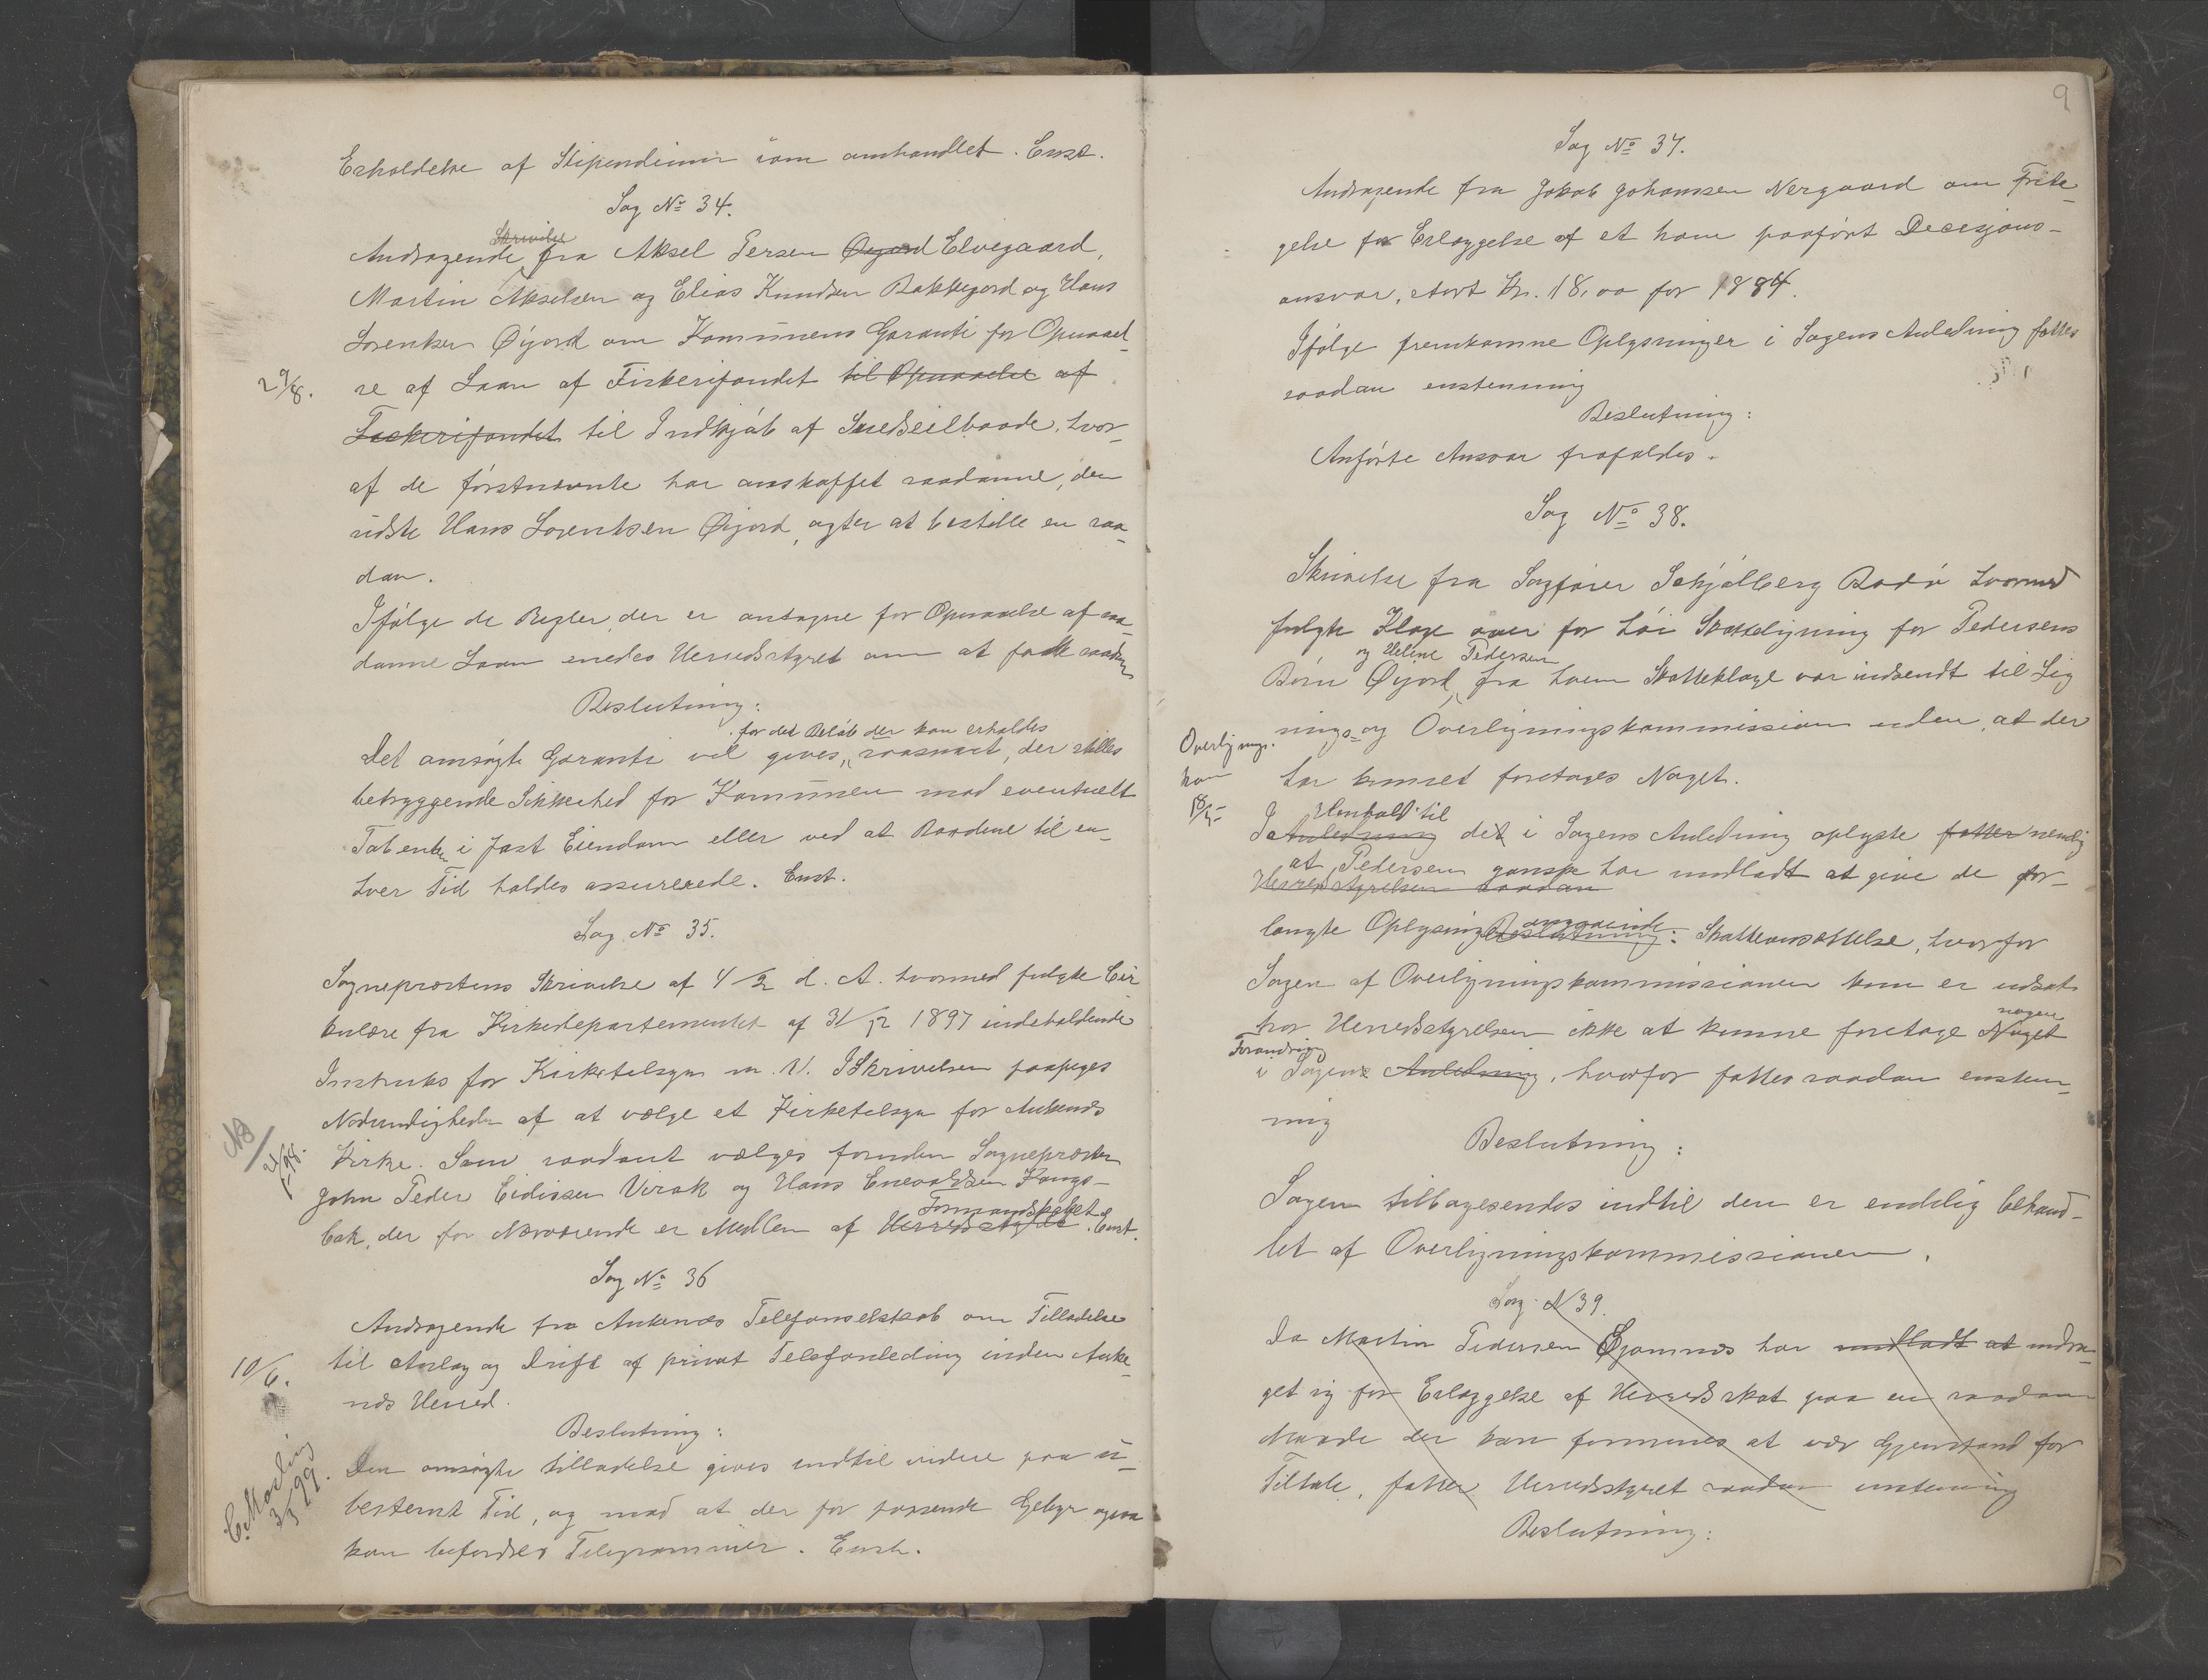 Erholdelse af Stipendium som omhandlet. Enst.
Sag No 34.
Skrivelse
Andragende fra Aksel Persen Øigord Elvegaard,
Martin Akselsen og Elias Knudsen Bakkejord og Hans
Lorentsen Øijord om Komunens Garanti for Opnaael-
29/8.
se af Laan af Fiskerifondet til Opnaaelse af
Fiskerifondet til Indkjøb af Seilbaade, hvor-
af de førstnævnte har anskaffet saadanne, den
sidste Hans Lorentsen Øijord, agter at bestille en saa-
dan.
Ifølge de Regler, der er antagne for Opnaaelse af saa-
danne Laan enedes Herredsstyret om at fatte saadan
Beslutning:
for det Beløb der kan erholdes
Det ansøgte Garanti vil gives, saasnart, der stilles
betryggende Sikkerhed for Komunen mod eventuelt
Tab enten i fast Eiendom eller ved at Baadene til en-
hver Tid holdes assurerede. Enst.
Sag No 35.
Sogneprestens Skrivelse af 4/2 d. A. hvormed fulgte Cir
kulære fra Kirkedepartementet af 31/12 1897 indeholdende
Instruks for Kirketilsyn m. V. I Skrivelsen paapeges
Nødvendigheden af at vælge et Kirketilsyn for Ankenes
NB
Kirke. Som saadant vælges foruden Sognepresten
John Peder Eidissen Virak og Hans Enevoldsen Kongs-
Formandskabet
bak, der for Nærværende er Medlem af Herredsstyret. Enst.
Sag No 36
Andragende fra Ankenes Telefonselskab om Tilladelse
10/6.
til Anlæg og Drift af privat Telefonledning inden Anke
næs Herred.
Beslutning:
Den ansøgte tilladelse gives indtil videre paa u-
bestemt Tid, og mod at der for passende Gebyr ogsaa
kan befordres Telegrammer. Enst.
9
Sag No 37.
Andragende fra Jakob Johansen Nergaard om Frita-
gelse for Erlæggelse af et ham paaført Decisjons-
ansvar, stort Kr. 18,00 for 1884.
Ifølge fremkomne Oplysninger i Sagens Anledning fattes
saadan enstemmig
Beslutning:
Anførte Ansvar frafaldes.
Sag No 38.
Skrivelse fra Sagfører Schjølberg Bodø hvormed
fulgte Klage over for høi Skatteligning for Pedersens
og Heline Pedersen
Børn Øijord, fra hvem Skatteklage var indsendt til Lig
nings- og Overligningskommission uden, at der
Overlignings.
kom
har kunnet foretages Noget.
Henhold til
I Anledning det i Sagens Anledning oplyste fatter nemlig
at Pedersen ganske har undladt at give de for-
Herredsstyrelsen saadan
angaaende
langte Oplysning Beslutning: Skatteansættelse, hvorfor
Sagen af Overligningskommissionen kun er udsat
nogen
tror Herredsstyrelsen ikke at kunne foretage Noget
Forandring
i Sagens Anledning, hvorfor fattes saadan enstem-
mig
Beslutning:
Sagen tilbagesendes indtil den er endelig behand-
let af Overligningskommissionen.
Sag N 39.
Da Martin Pedersen Gjømnes har undladt at unddra-
get sig for Erlæggelse af Herredsskat paa en saadan
Maade der kan formenes at vær Gjenstand for
Tiltale, fatter Herredsstyret saadan enstemmig
Beslutning: